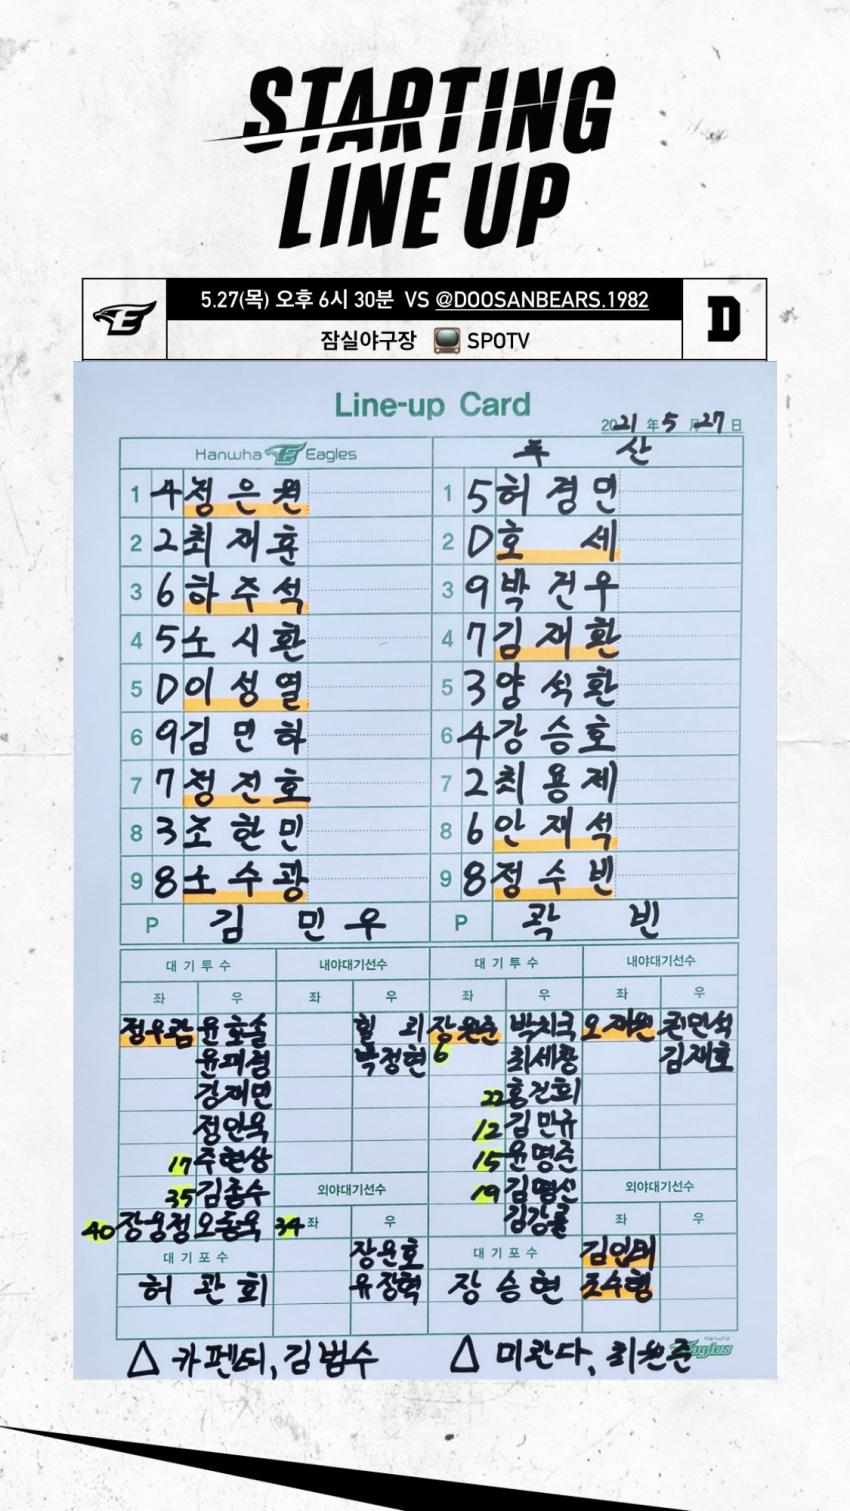 STARTING
LINE UP
5.27(목) 오후 6시 30분 VS @DOOSANBEARS.1982
잠실야구장 SPOTV
Line-up Card
2021 年 5 月 27 日
Hanwha Eagles 두 산
1 4 정은원 1 5 허경민
2 2 최재훈 2 D 호세
3 6 하주석 3 9 박건우
4 5 노시환 4 7 김재환
5 D 이성열 5 3 양석환
6 9 김민하 6 4 강승호
7 7 정진호 7 2 최용제
8 3 조한민 8 6 안재석
9 8 노수광 9 8 정수빈
P 김민우 P 곽빈
대기투수 내야대기선수 대기투수 내야대기선수
좌 우 좌 우 좌 우 좌 우
정우람 윤호솔 힐리 장원준 박치국 오재원 권민석
윤대경 박정현 6 최세창 김재호
강재민 22 홍건희
정인욱 12 김민규
17 주현상 15 윤명준
35 김종수 외야대기선수 19 김명신 외야대기선수
40 장웅정 오동욱 34 좌 우 김강률 좌 우
대기포수 장운호 대기포수 김인태
허관회 유장혁 장승현 조수행
△ 카펜터, 김범수 △ 미란다, 최원준
Hanwha Eagles